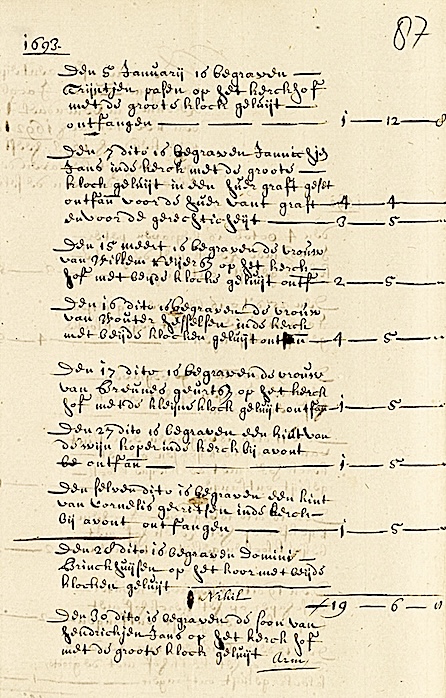 87
1693.
Den 5 Januarij is begraven
Trijntjen pasen op het kerckhof
met de groote klock geluijt
ontfangen 1 - 12 - 8
Den 7 dito is begraven Jannichjen
Jans inde kerck met de groote
klock geluijt in een huer graft geset
ontfan voor de huer vant graft 4 - 4
en voor de gerechticheijt 3 - 5
Den 15 meert is begraven de vrouw
van Willem op het kerck
hof met beijde klocke geluijt ontf 2 - 5
Den 16 dito is begraven de vrouw
van Wouter inde kerck
met beijde klocken geluijt ontfan 4 - 5
Den 17 dito is begraven de vrouw
van geurts op het kerck
hof met de kleijne klock geluijt ontfan 1 - 5
Den 27 dito is begraven een kint van
de wijn koper inde kerck bij avont
ontfan 1 - 5
Den selven dito is begraven een kint
van Cornelis gerritsen inde kerck
bij avont ontfangen 1 - 5
Den 28 dito is begraven Domini
Brinckhuijsen op het koor met beijde
klocken geluijt
Nihil
19 - 6 - 0
Den 30 dito is begraven de soon van
hendrickjen Jans op het kerck hof
met de groote klock geluijt Arm